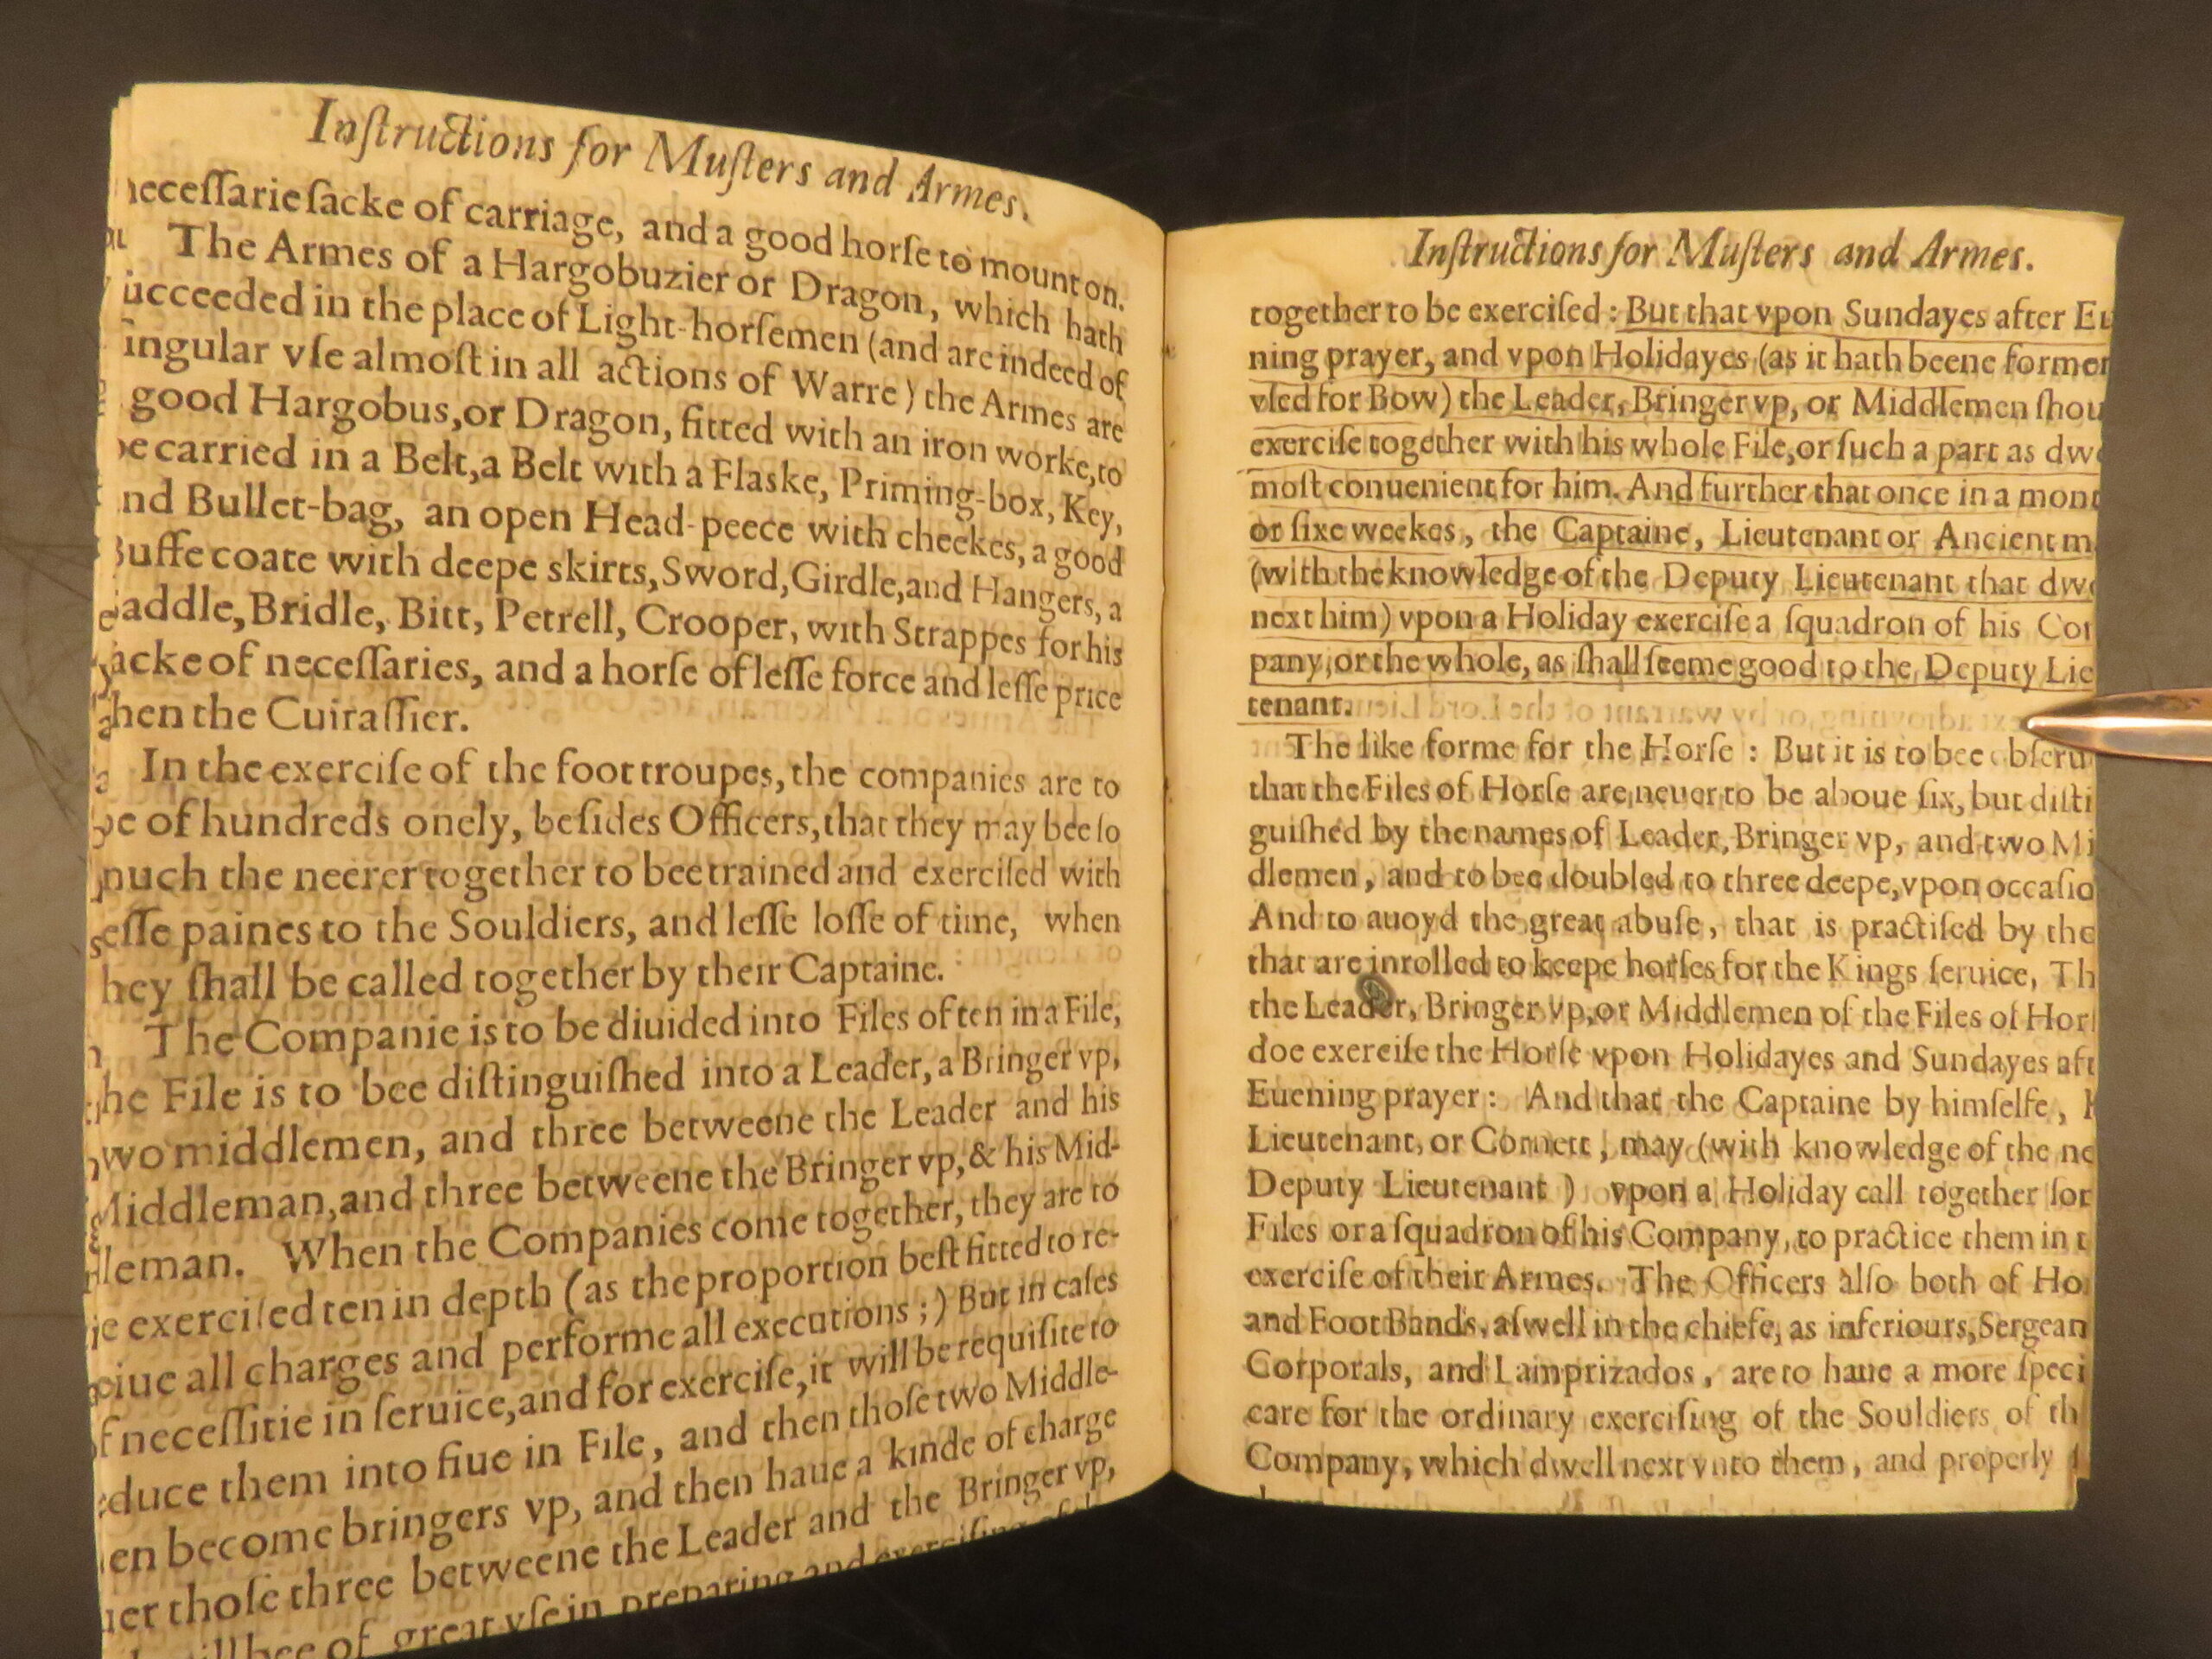 Inſtructions for Muſters and Armes.
neceſſarie ſacke of carriage, and a good horſe to mount on.
The Armes of a Hargobuzier or Dragon, which hath
ucceeded in the place of Light-horſemen (and are indeed of
ingular vſe almoſt in all actions of Warre) the Armes are
good Hargobus, or Dragon, fitted with an iron worke, to
be carried in a Belt, a Belt with a Flaske, Priming-box, Key,
nd Bullet-bag, an open Head-peece with cheekes, a good
Buffe coate with deepe skirts, Sword, Girdle, and Hangers, a
addle, Bridle, Bitt, Petrell, Crooper, with Strappes for his
acke of neceſſaries, and a horſe of leſſe force and leſſe price
hen the Cuiraſſier.
In the exerciſe of the foot troupes, the companies are to
be of hundreds onely, beſides Officers, that they may bee ſo
much the neerer together to bee trained and exerciſed with
eſſe paines to the Souldiers, and leſſe loſſe of time, when
hey ſhall be called together by their Captaine.
The Companie is to be diuided into Files of ten in a File,
he File is to bee diſtinguiſhed into a Leader, a Bringer vp,
wo middlemen, and three betweene the Leader and his
Middleman, and three betweene the Bringer vp, & his Mid-
leman. When the Companies come together, they are to
e exerciſed ten in depth (as the proportion beſt fitted to re-
eiue all charges and performe all executions;) But in caſes
of neceſſitie in ſeruice, and for exerciſe, it will be requiſite to
educe them into fiue in File, and then thoſe two Middle-
en become bringers vp, and then haue a kinde of charge
uer thoſe three betweene the Leader and the Bringer vp,
ill bee of great vſe in preparing and exerciſing
Inſtructions for Muſters and Armes.
together to be exerciſed: But that vpon Sundayes after Eu
ning prayer, and vpon Holidayes (as it hath beene former
vſed for Bow) the Leader, Bringer vp, or Middlemen ſhou
exerciſe together with his whole File, or ſuch a part as dwe
moſt conuenient for him. And further that once in a mont
or ſixe weekes, the Captaine, Lieutenant or Ancient m
(with the knowledge of the Deputy Lieutenant that dwe
next him) vpon a Holiday exerciſe a ſquadron of his Com
pany, or the whole, as ſhall ſeeme good to the Deputy Lie
tenant.
The like forme for the Horſe: But it is to bee obſeru
that the Files of Horſe are neuer to be aboue ſix, but diſti
guiſhed by the names of Leader, Bringer vp, and two Mi
dlemen, and to bee doubled to three deepe, vpon occaſio
And to auoyd the great abuſe, that is practiſed by the
that are inrolled to keepe horſes for the Kings ſeruice, Th
the Leader, Bringer vp, or Middlemen of the Files of Horſ
doe exerciſe the Horſe vpon Holidayes and Sundayes aft
Euening prayer: And that the Captaine by himſelfe, h
Lieutenant, or Cornett, may (with knowledge of the ne
Deputy Lieutenant) vpon a Holiday call together ſom
Files or a ſquadron of his Company, to practice them in t
exerciſe of their Armes. The Officers alſo both of Ho
and Foot Bands, aſwell in the chiefe, as inferiours, Sergean
Corporals, and Lamprizados, are to haue a more ſpeci
care for the ordinary exerciſing of the Souldiers of th
Company, which dwell next vnto them, and properly